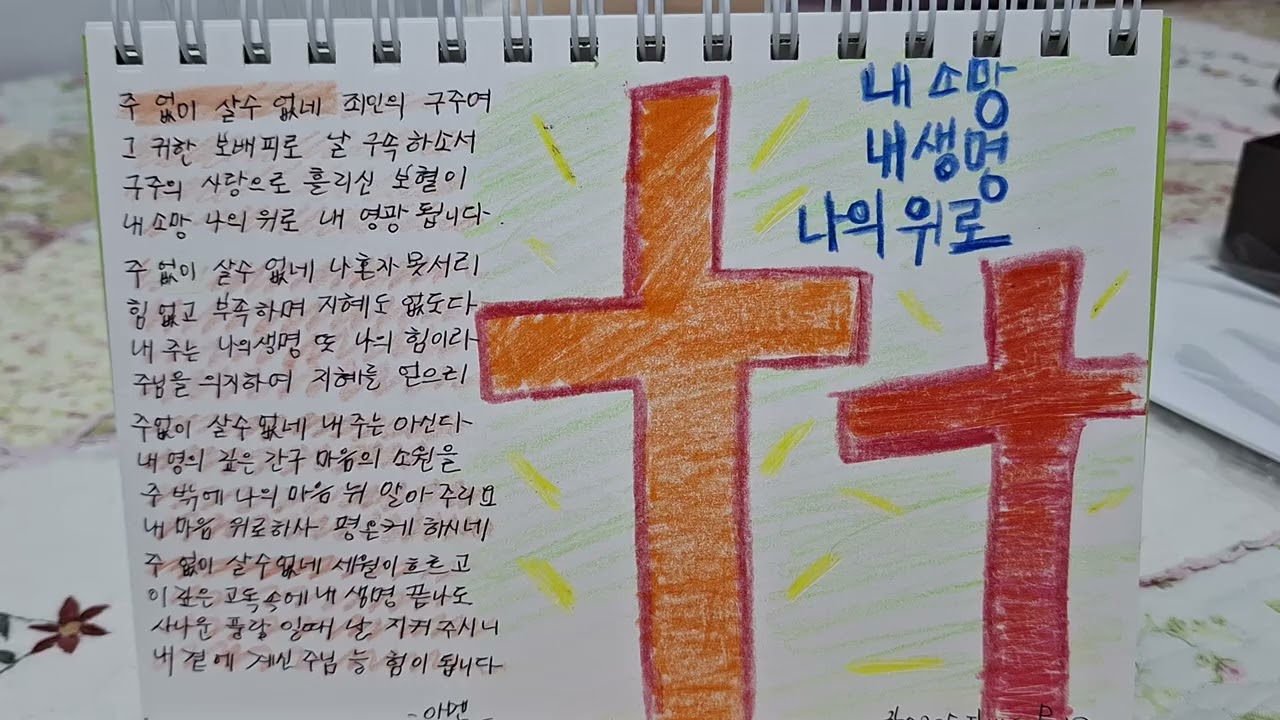 주 없이 살수 없네 죄인의 구주여
그 귀한 보배피로 날 구속하소서
구주의 사랑으로 흘리신 보혈이
내 소망 나의 위로 내 영광 됩니다.
주 없이 살수 없네 나 혼자 못서리
힘 없고 부족하며 지혜도 없도다
내 주는 나의생명 또 나의 힘이라
주님을 의지하여 지혜를 얻으리
주없이 살수 없네 내 주는 아신다
내 영의 깊은 간구 마음의 소원을
주 밖에 나의 마음 뉘 알아 주리요
내 마음 위로하사 평온케 하시네
주 없이 살수없네 세월이 흐르고
이 깊은 고독속에 내 생명 끝나도
사나운 풍랑 일때 날 지켜 주시니
내 곁에 계신 주님 늘 힘이 됩니다
-아멘-
내 소망
내 생명
나의 위로